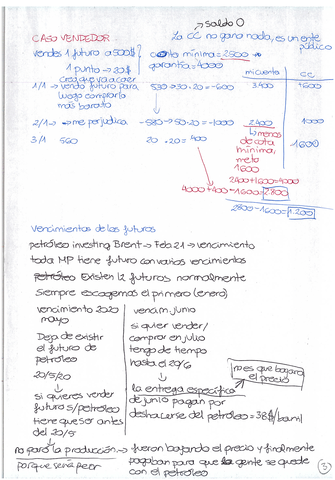 → saldo 0
CASO VENDEDOR
La CC no gana nada, es un ente público
vendes 1 futuro a 500$
cuota mínima = 2500
1 punto → 20$
garantía = 4000
mi cuenta
CC
crea que va a caer
1/1 → vendo futuro para luego comprarlo más barato
530 → 30 · 20 = -600
3.400
4600
2/1 → me perjudica
-580 → 50 · 20 = -1000
2400
1000
↳ menos de cuota mínima, meto 1600
1600
3/1 560
20 · 20 = 400
2400 + 1600 = 4000
4000 + 400 - 1600 = 2800
2800 - 1600 = 1.200
Vencimientos de los futuros
petróleo investing Brent → Feb 21 → vencimiento
toda MP tiene futuro con varios vencimientos
petróleo Existen 12 futuros normalmente
Siempre escogemos el primero (enero)
vencimiento 2020
mayo
Deja de existir
el futuro de
petróleo
20/5/20
↓
si quieres vender
futuro s/petróleo
tiene que ser antes
del 20/5
↓
no paró la producción →
porque sería peor
vencim junio
si quier vender/
comprar en julio
tengo de tiempo
hasta el 20/6
↓
no es que bajara el precio
la entrega específica
de junio pagan por
deshacerse del petróleo = 38$/barril
fueron bajando el precio y finalmente
pagaban para que la gente se quede
con el petróleo
3